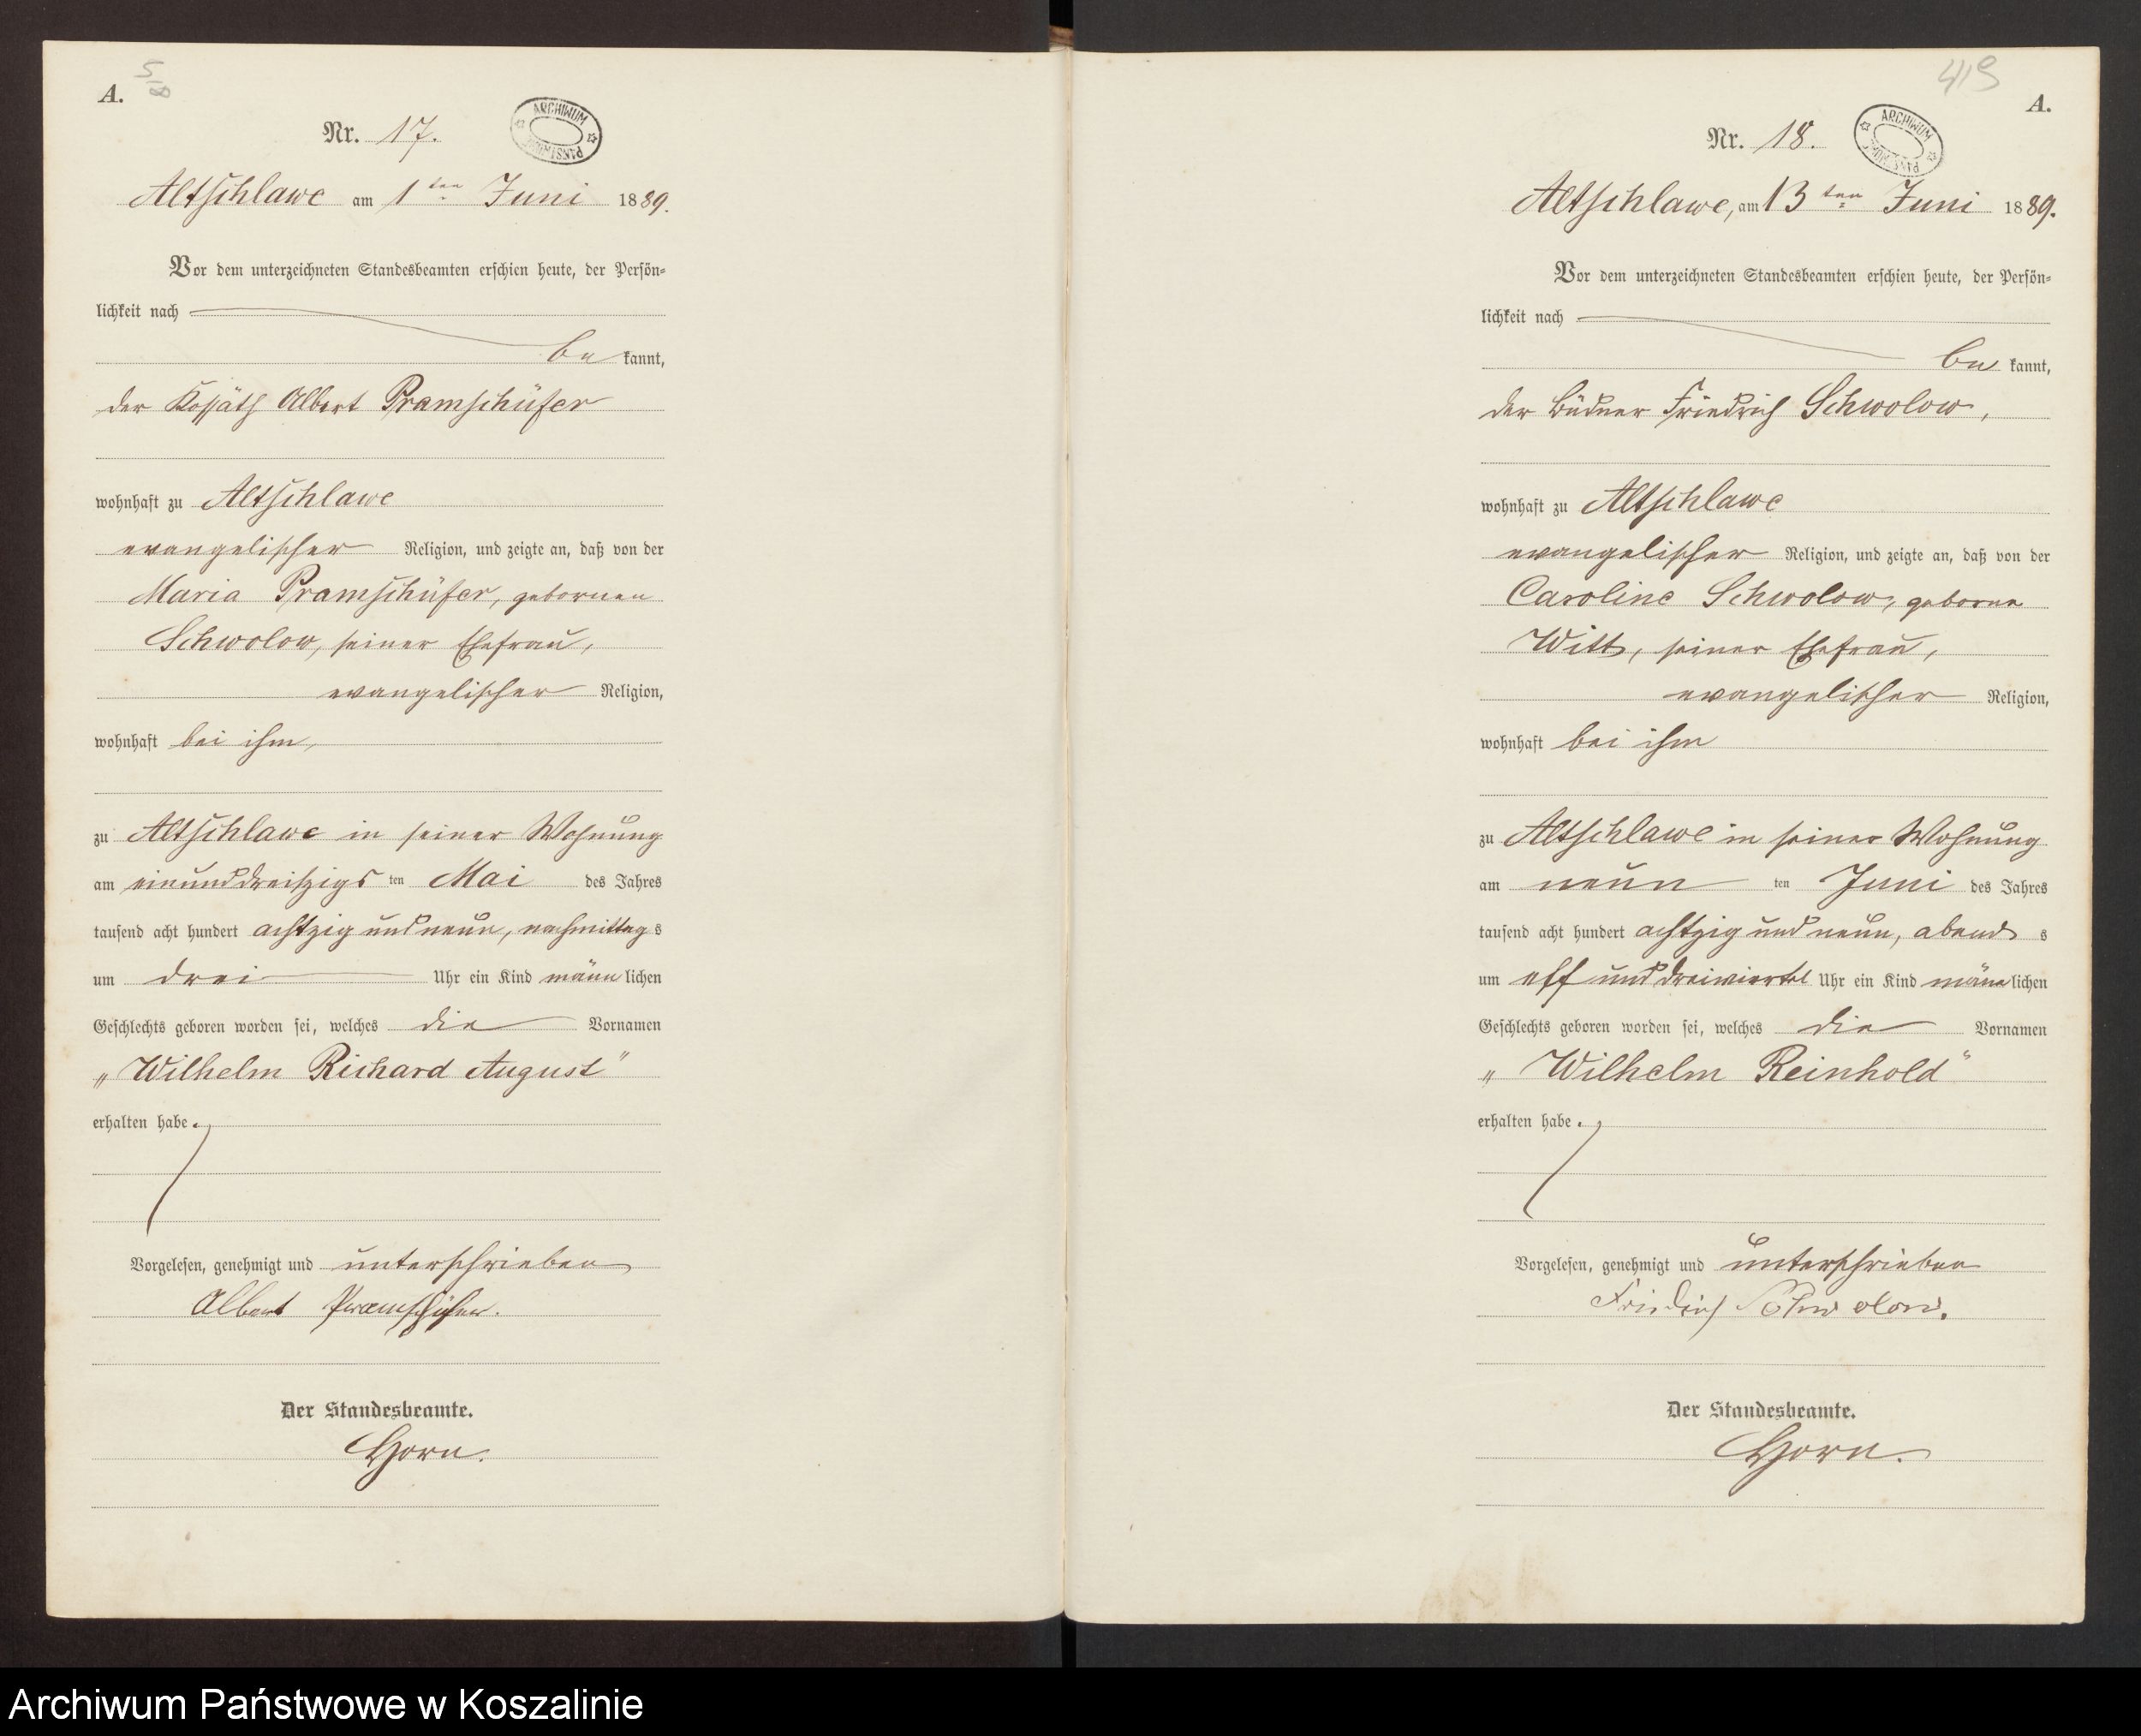 A.
5/8
Nr. 17.
ARCHIWUM
Altschlawe am 1ten Juni 1889.
Vor dem unterzeichneten Standesbeamten erschien heute, der Persön-
lichkeit nach
be kannt,
der Kossäth Albert Pramschüfer
wohnhaft zu Altschlawe
evangelischer Religion, und zeigte an, daß von der
Maria Pramschüfer, gebornen
Schwolow, seiner Ehefrau,
evangelischer Religion,
wohnhaft bei ihm,
zu Altschlawe in seiner Wohnung
am einunddreißigs ten Mai des Jahres
tausend acht hundert achtzig und neun, nachmittag s
um drei Uhr ein Kind männ lichen
Geschlechts geboren worden sei, welches die Vornamen
„Wilhelm Richard August“
erhalten habe.
Vorgelesen, genehmigt und unterschrieben
Albert Pramschüfer.
Der Standesbeamte.
Horn.
419
A.
Nr. 18.
ARCHIWUM
Altschlawe, am 13ten Juni 1889.
Vor dem unterzeichneten Standesbeamten erschien heute, der Persön-
lichkeit nach
be kannt,
der Büdner Friedrich Schwolow,
wohnhaft zu Altschlawe
evangelischer Religion, und zeigte an, daß von der
Caroline Schwolow, geborne
Witt, seiner Ehefrau,
evangelischer Religion,
wohnhaft bei ihm
zu Altschlawe in seiner Wohnung
am neun ten Juni des Jahres
tausend acht hundert achtzig und neun, abend s
um elf und dreiviertel Uhr ein Kind männ lichen
Geschlechts geboren worden sei, welches die Vornamen
„Wilhelm Reinhold“
erhalten habe.
Vorgelesen, genehmigt und unterschrieben
Friedrich Schwolow.
Der Standesbeamte.
Horn.
Archiwum Państwowe w Koszalinie